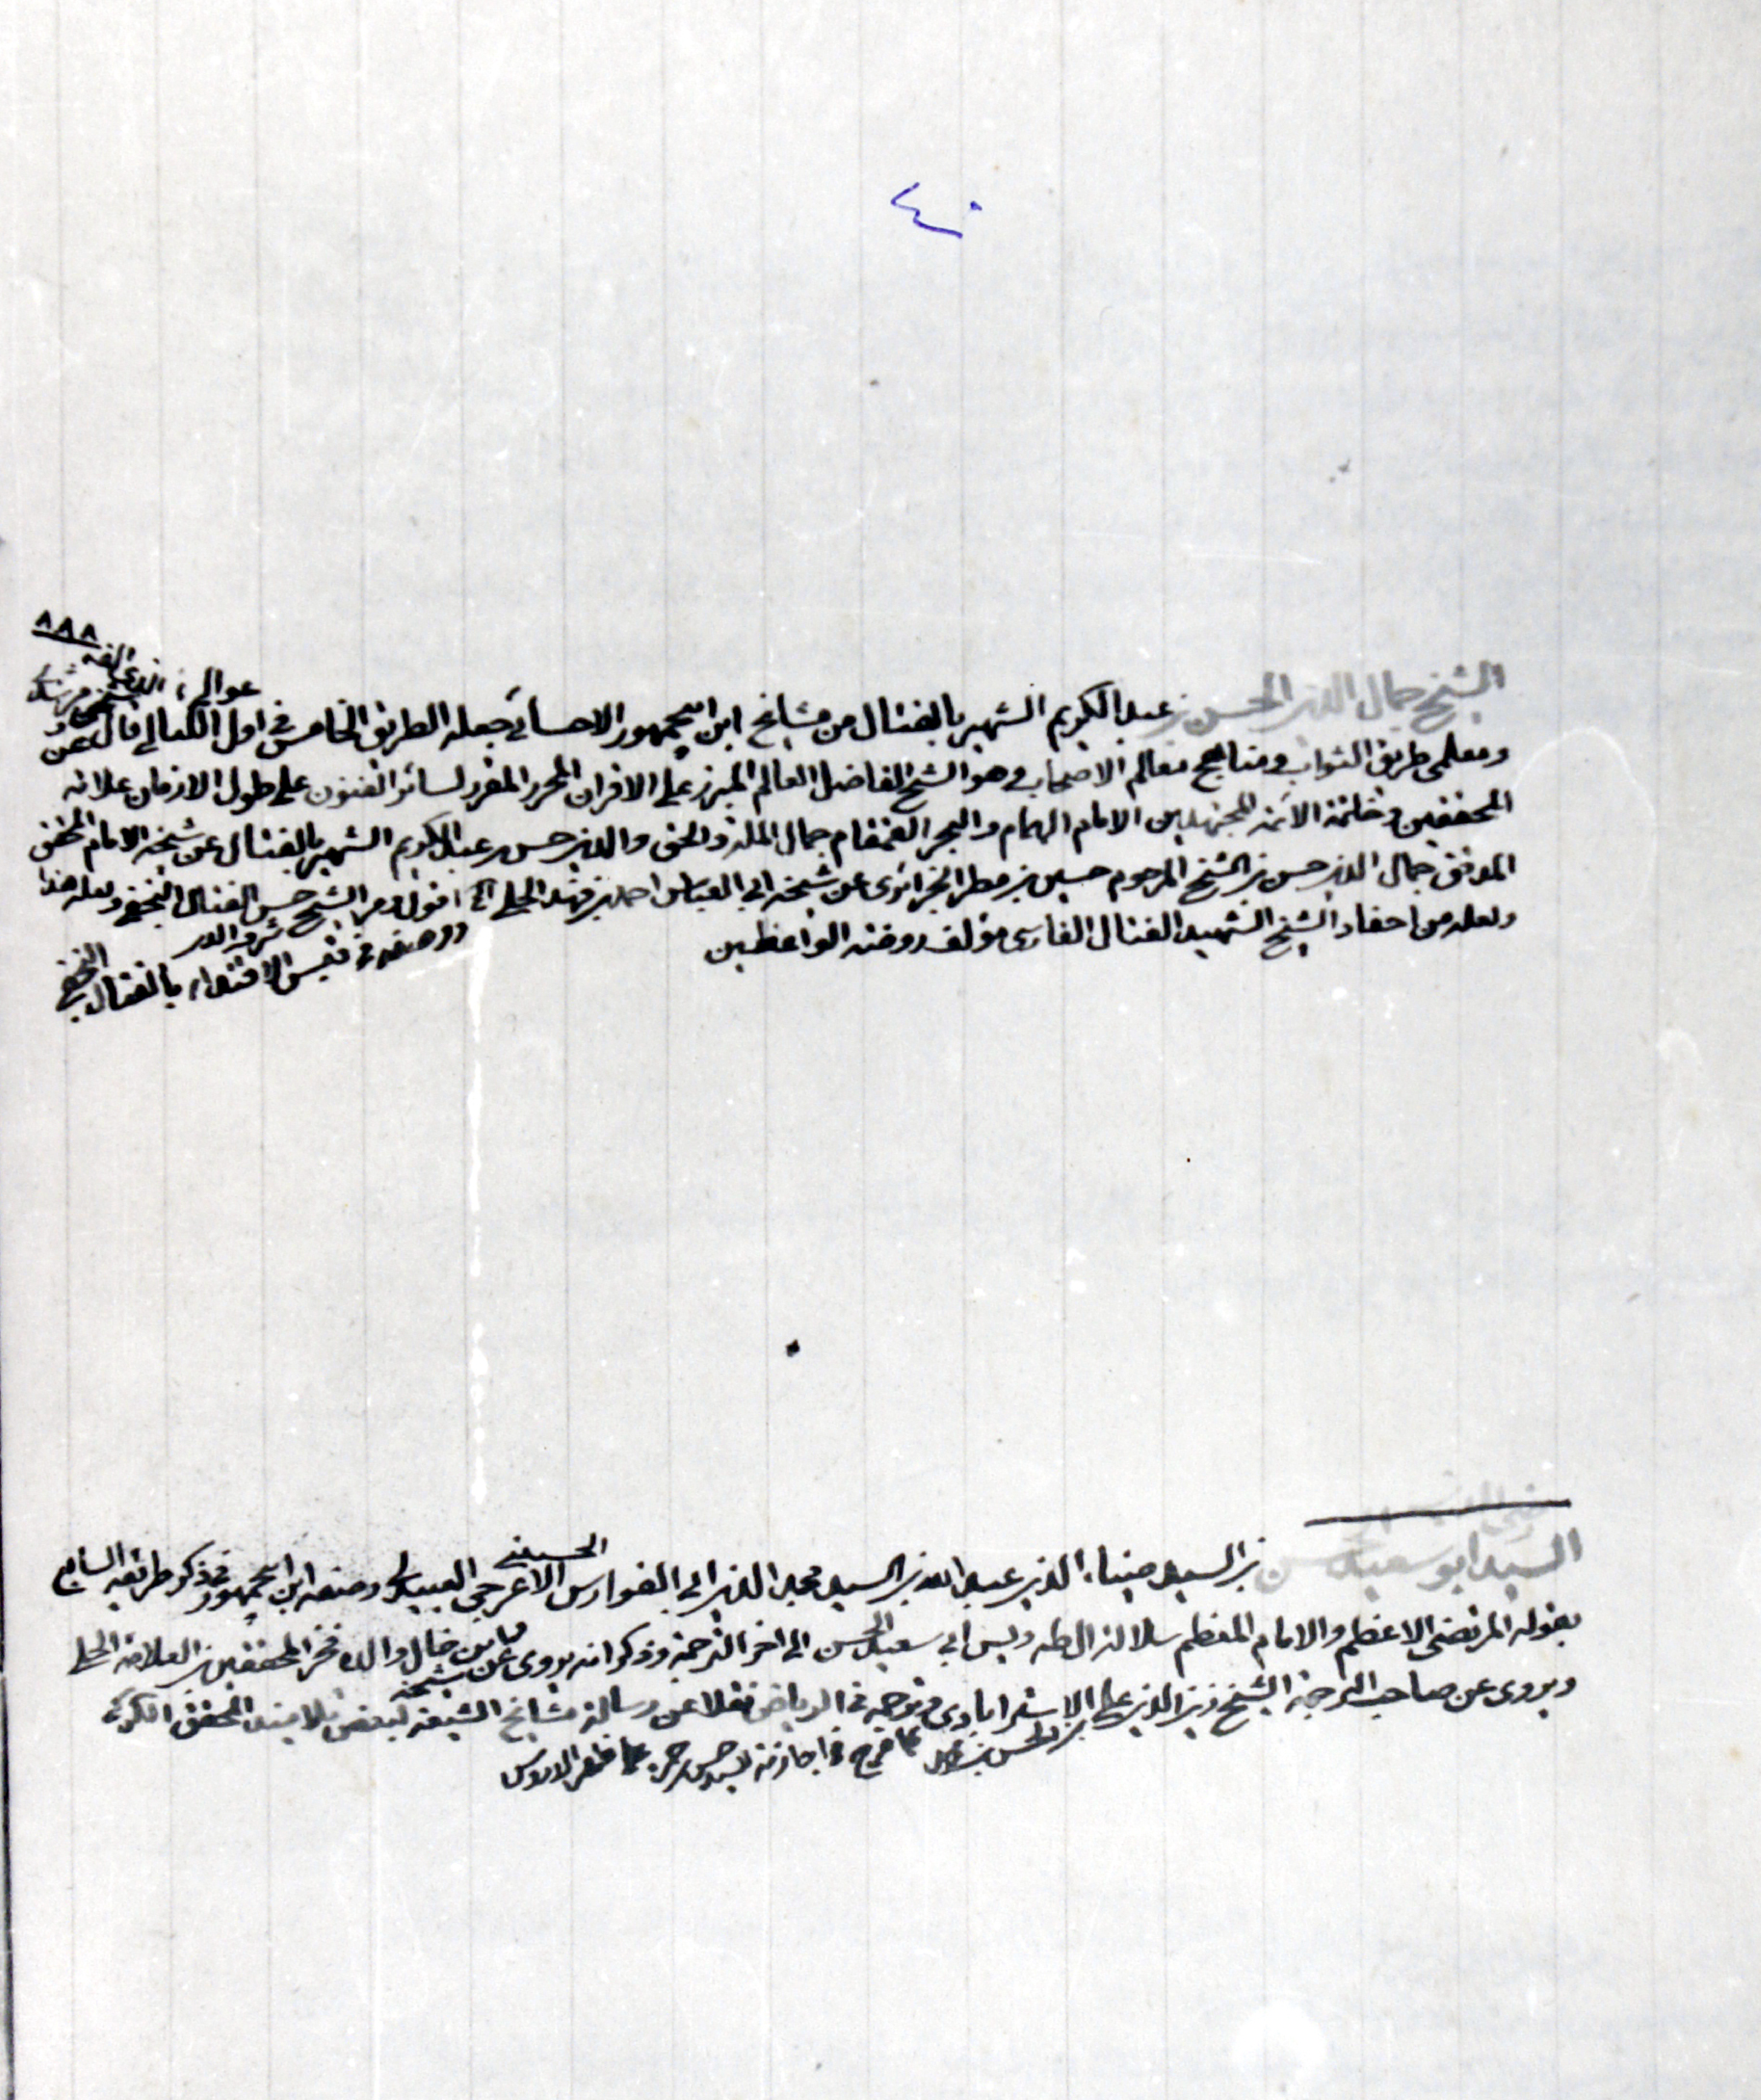 ٤٠
٨٨٨
الفه
الشيخ جمال الدين الحسن بن عبد الكريم الشهير بالفتال من مشايخ ابن ابي جمهور الاحسائي جعله الطريق الخامس في اول عوالي اللئالي قال عن شيخي
ومعلمي طريق الثواب ومناهج معالم الاصحاب وهو الشيخ الفاضل العالم المبرز على الاقران المحرر المقرر لسائر الفنون على طول الازمان علامة
المحققين وخاتمة الائمة المجتهدين الامام الهمام والبحر القمقام جمال الملة والحق والدين حسن بن عبد الكريم الشهير بالفتال عن شيخه الامام المحقق
المدقق جمال الدين حسن بن الشيخ المرحوم حسين بن مطر الجزائري عن شيخه ابي العباس احمد بن فهد الحلي الخ اقول ومر الشيخ حسن الفتال النجفي ولعله هذا
ولعله من احفاد الشيخ الشهيد الفتال الفارسي مؤلف روضة الواعظين
ووصفه في قبس الاقتداء بالفتال النجفي
السيد ابو سعيد الحسن بن السيد ضياء الدين عبد الله بن السيد مجد الدين ابي الفوارس الاعرجي الحسيني العبيدلي وصفه ابن ابي جمهور في ذكر طريقه السابع
بقوله المرتضى الاعظم والامام المعظم سلالة ال طه ويس ابي سعيد الحسن الى اخر الترجمة وذكر انه يروي عن شيخه وابن خال والده فخر المحققين بن العلامة الحلي
ويروي عن صاحب الترجمة الشيخ زين الدين علي الاسترابادي وترجمه في الرياض نقلا عن رسالة مشايخ الشيعة لبعض تلاميذ المحقق الكركي
بن الحسن بن محمد كما صرح في اجازته للسيد حسن بن حمزة